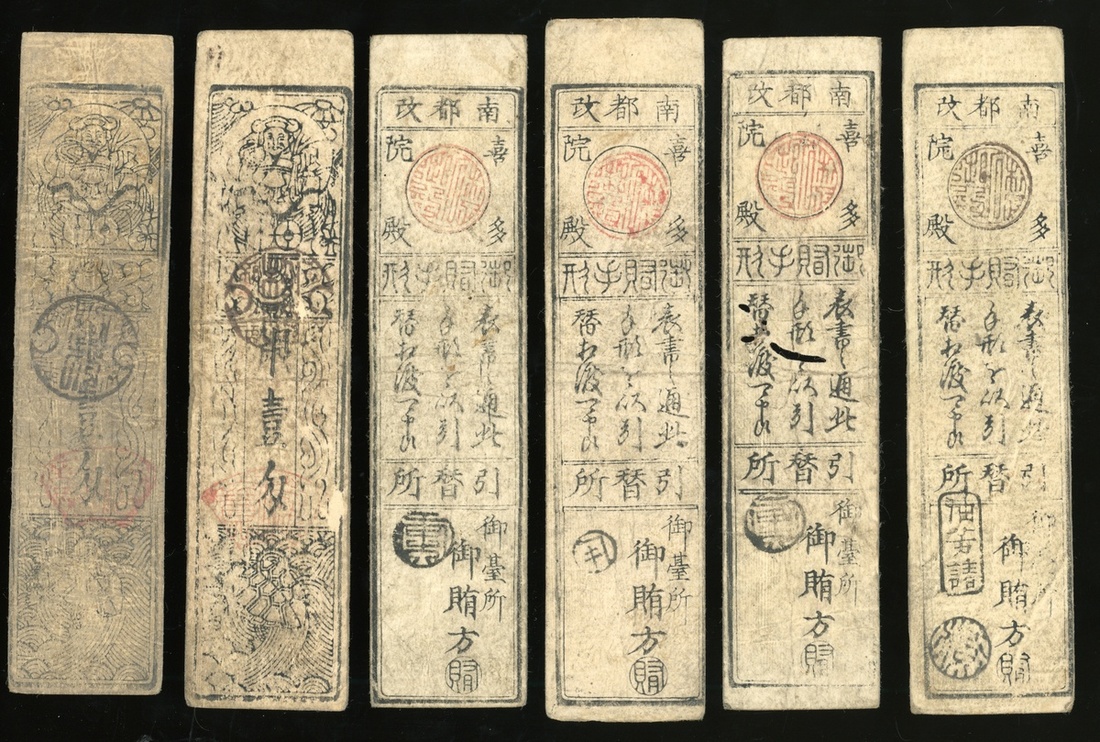 壹匁
壹匁
南都改
喜多
院殿
御賄手形
表書之通此
手形を以引
替相渡可申候
引替所
御臺所
御賄方
南都改
喜多
院殿
御賄手形
表書之通此
手形を以引
替相渡可申候
引替所
御臺所
御賄方
南都改
喜多
院殿
御賄手形
表書之通此
手形を以引
替相渡可申候
引替所
御臺所
御賄方
南都改
喜多
院殿
御賄手形
表書之通此
手形を以引
替相渡可申候
引替所
御臺所
御賄方